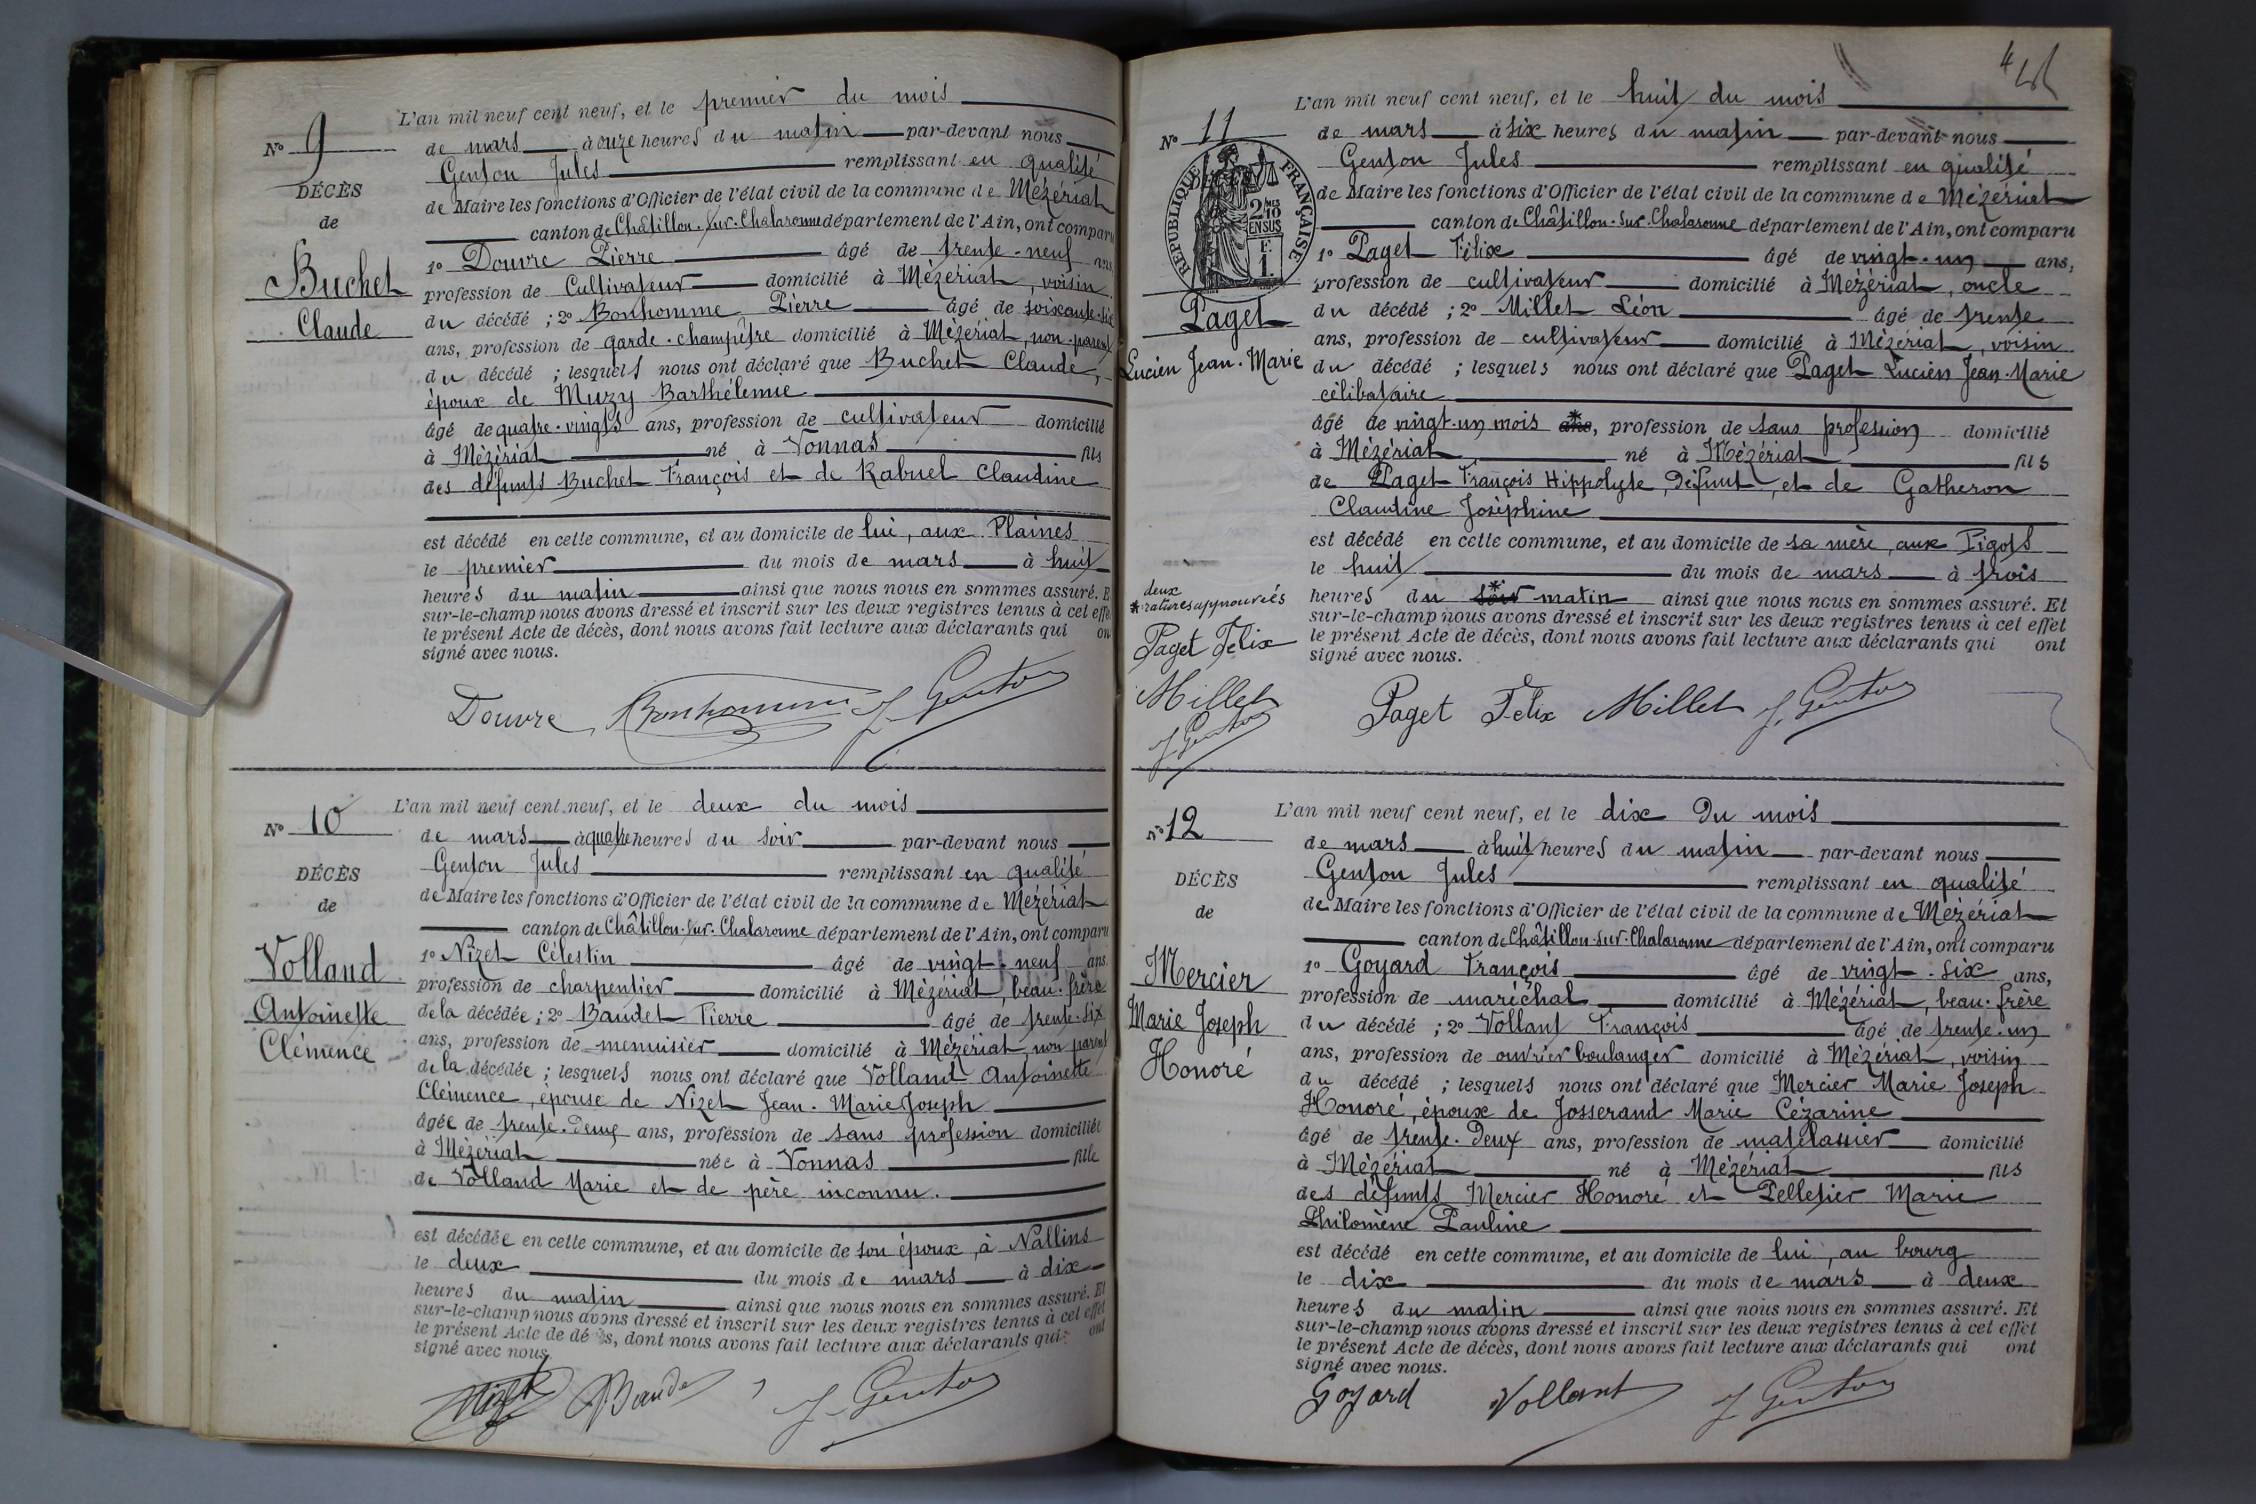 L'an mil neuf cent neuf, et le premier du mois
N° 9
de mars à onze heures du matin par-devant nous
Genton Jules remplissant en qualité
DÉCÈS
de Maire les fonctions d'Officier de l'état civil de la commune de Mézériat
de
canton de Châtillon-sur-Chalaronne département de l'Ain, ont comparu
Buchet
1° Douvre Pierre âgé de trente-neuf ans,
profession de Cultivateur domicilié à Mézériat, voisin
Claude
du décédé ; 2° Bonhomme Pierre âgé de soixante-six
ans, profession de garde-champêtre domicilié à Mézériat, non-parent
du décédé ; lesquels nous ont déclaré que Buchet Claude,
époux de Muzy Barthélemie
âgé de quatre-vingts ans, profession de cultivateur domicilié
à Mézériat né à Vonnas fils
des défunts Buchet François et de Rabuel Claudine
est décédé en cette commune, et au domicile de lui, aux Plaines
le premier du mois de mars à huit
heures du matin ainsi que nous nous en sommes assuré. E
sur-le-champ nous avons dressé et inscrit sur les deux registres tenus à cet effe
le présent Acte de décès, dont nous avons fait lecture aux déclarants qui on
signé avec nous.
Douvre Bonhomme J. Genton
L'an mil neuf cent neuf, et le deux du mois
N° 10
de mars à quatre heures du soir par-devant nous
Genton Jules remplissant en qualité
DÉCÈS
de Maire les fonctions d'Officier de l'état civil de la commune de Mézériat
de
canton de Châtillon-sur-Chalaronne département de l'Ain, ont comparu
Volland
1° Nizet Célestin âgé de vingt-neuf ans
profession de charpentier domicilié à Mézériat, beau-frère
Antoinette
de la décédée ; 2° Baudet Pierre âgé de trente-six
Clémence
ans, profession de menuisier domicilié à Mézériat, non parent
de la décédée ; lesquels nous ont déclaré que Volland Antoinette
Clémence, épouse de Nizet Jean-Marie Joseph
âgée de trente-deux ans, profession de sans profession domiciliée
à Mézériat née à Vonnas fille
de Volland Marie et de père inconnu.
est décédée en cette commune, et au domicile de son époux, à Nallins
le deux du mois de mars à dix
heures du matin ainsi que nous nous en sommes assuré. Et
sur-le-champ nous avons dressé et inscrit sur les deux registres tenus à cet effet
le présent Acte de décès, dont nous avons fait lecture aux déclarants qui ont
signé avec nous
Nizet Baudet J. Genton
L'an mil neuf cent neuf, et le huit du mois
N° 11
de mars à six heures du matin par-devant nous
Genton Jules remplissant en qualité
RÉPUBLIQUE FRANÇAISE
2/10 MES EN SUS
F. 1.
de Maire les fonctions d'Officier de l'état civil de la commune de Mézériat
canton de Châtillon-sur-Chalaronne département de l'Ain, ont comparu
1° Paget Félix âgé de vingt-un ans,
profession de cultivateur domicilié à Mézériat, oncle
Paget
du décédé ; 2° Millet Léon âgé de trente
ans, profession de cultivateur domicilié à Mézériat, voisin
Lucien Jean-Marie
du décédé ; lesquels nous ont déclaré que Paget Lucien Jean-Marie
célibataire
âgé de vingt-un mois * ans, profession de sans profession domicilié
à Mézériat, né à Mézériat fils
de Paget François Hippolyte, défunt, et de Gatheron
Claudine Joséphine
est décédé en cette commune, et au domicile de sa mère, aux Pigots
le huit du mois de mars à trois
heures du * soir matin ainsi que nous nous en sommes assuré. Et
deux
* ratures approuvées
sur-le-champ nous avons dressé et inscrit sur les deux registres tenus à cet effet
le présent Acte de décès, dont nous avons fait lecture aux déclarants qui ont
signé avec nous.
Paget Felix
Millet
J. Genton
Paget Felix Millet J. Genton
L'an mil neuf cent neuf, et le dix du mois
N° 12
de mars à huit heures du matin par-devant nous
Genton Jules remplissant en qualité
DÉCÈS
de Maire les fonctions d'Officier de l'état civil de la commune de Mézériat
de
canton de Châtillon-sur-Chalaronne département de l'Ain, ont comparu
Mercier
1° Goyard François âgé de vingt-six ans,
profession de maréchal domicilié à Mézériat, beau-frère
Marie Joseph
du décédé ; 2° Vollant François âgé de trente-un
Honoré
ans, profession de ouvrier boulanger domicilié à Mézériat, voisin
du décédé ; lesquels nous ont déclaré que Mercier Marie Joseph
Honoré, époux de Josserand Marie Cézarine
âgé de trente-deux ans, profession de matelassier domicilié
à Mézériat né à Mézériat fils
des défunts Mercier Honoré et Pelletier Marie
Philomène Pauline
est décédé en cette commune, et au domicile de lui, au bourg
le dix du mois de mars à deux
heures du matin ainsi que nous nous en sommes assuré. Et
sur-le-champ nous avons dressé et inscrit sur les deux registres tenus à cet effet
le présent Acte de décès, dont nous avons fait lecture aux déclarants qui ont
signé avec nous.
Goyard Vollant J. Genton